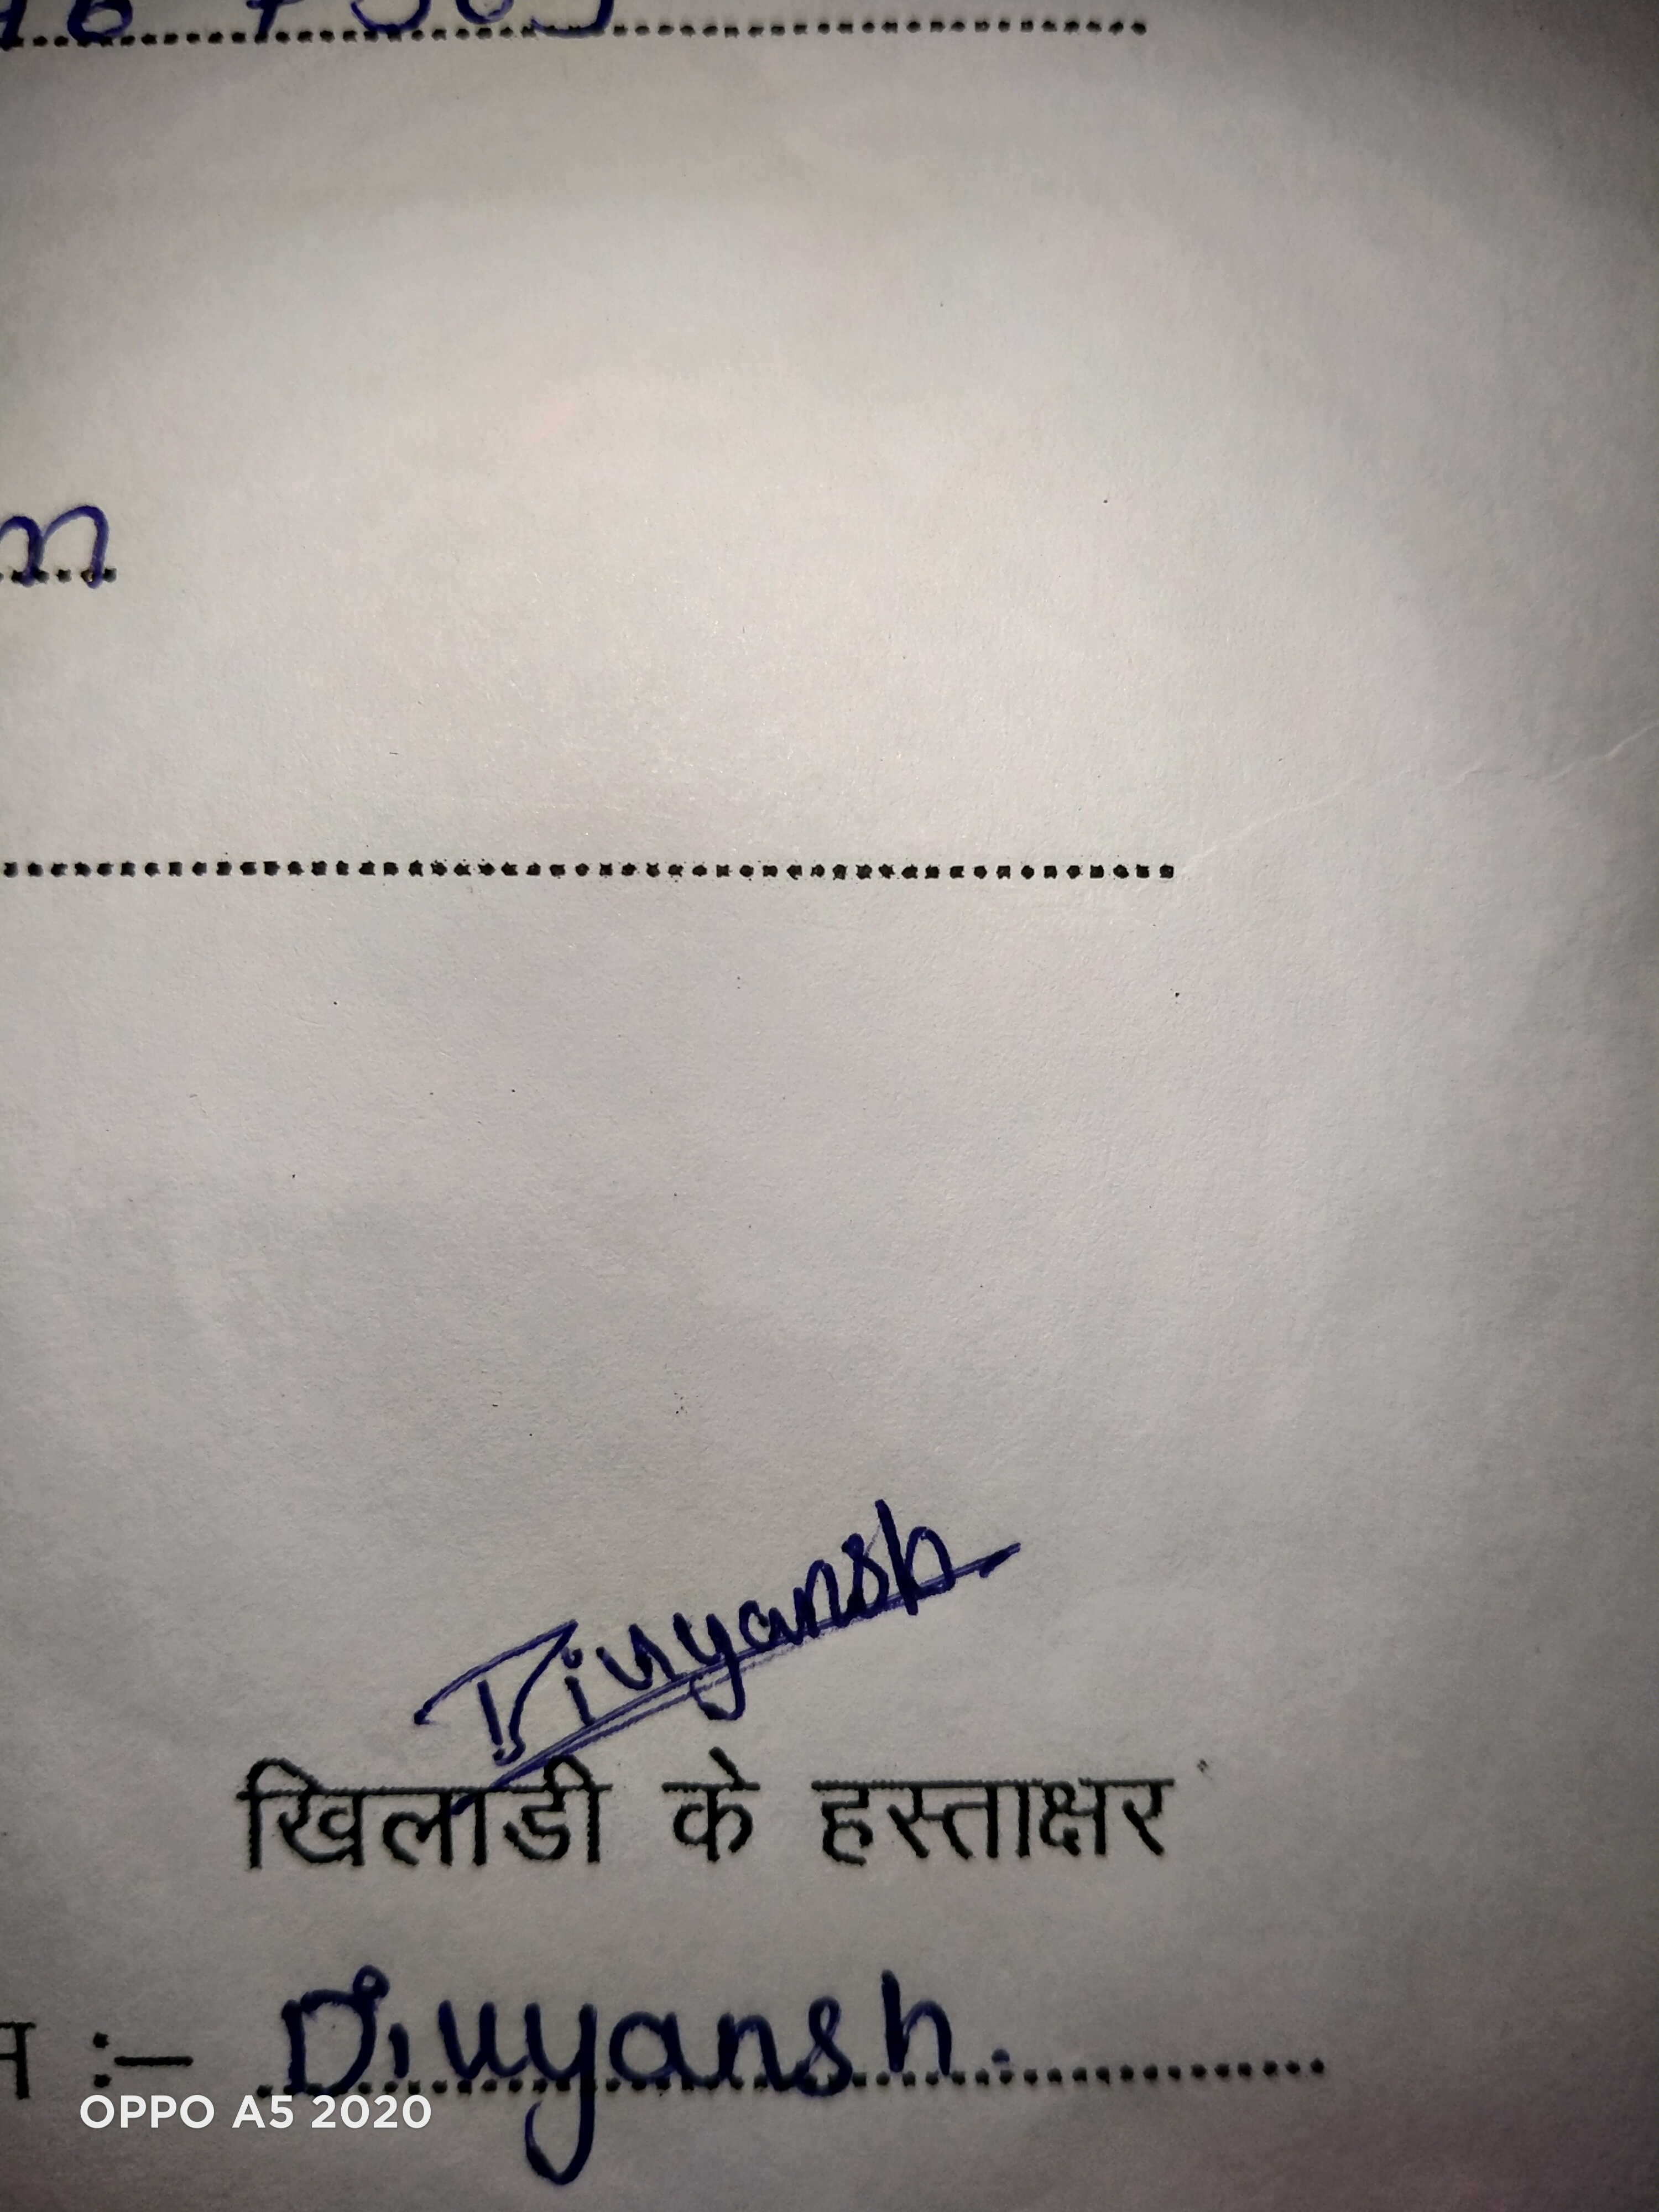 Divyansh
खिलाडी के हस्ताक्षर
:— Divyansh.
OPPO A5 2020